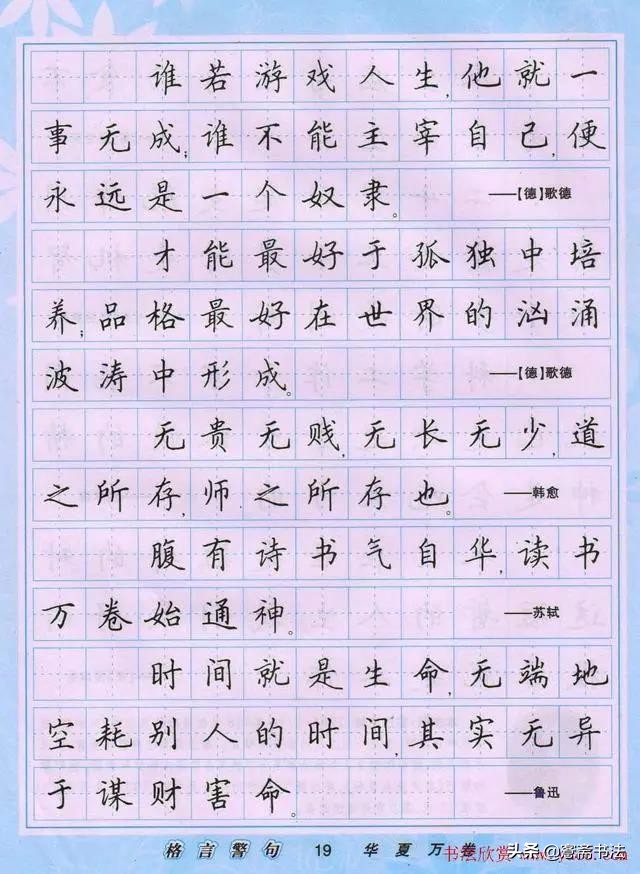 谁若游戏人生,他就一
事无成;谁不能主宰自己,便
永远是一个奴隶。 ——【德】歌德
才能最好于孤独中培
养;品格最好在世界的汹涌
波涛中形成。 ——【德】歌德
无贵无贱,无长无少,道
之所存,师之所存也。 ——韩愈
腹有诗书气自华,读书
万卷始通神。 ——苏轼
时间就是生命,无端地
空耗别人的时间,其实无异
于谋财害命。 ——鲁迅
格言警句 19 华夏万卷
书法欣赏
头条@鸾斋书法